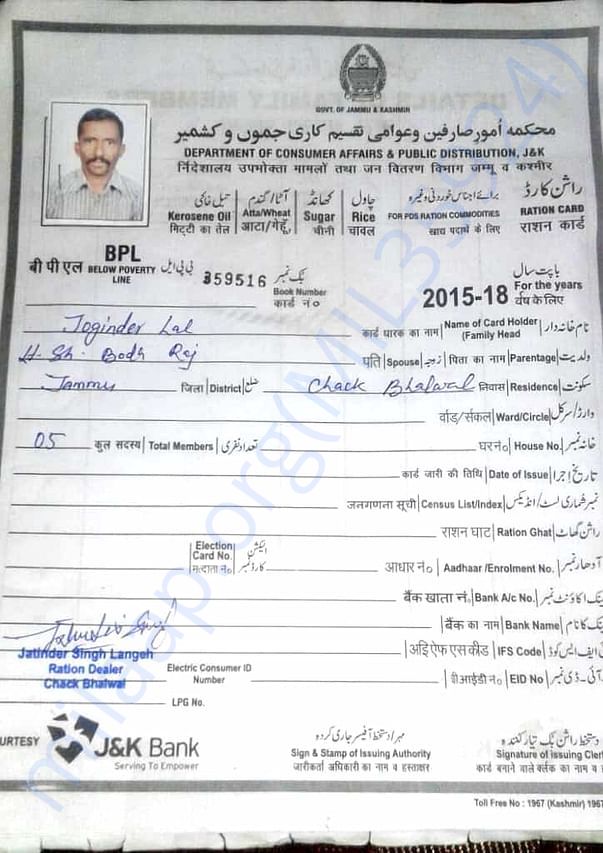 GOVT. OF JAMMU & KASHMIR
محکمہ اُمور صارفین و عوامی تقسیم کاری جموں و کشمیر
DEPARTMENT OF CONSUMER AFFAIRS & PUBLIC DISTRIBUTION, J&K
निदेशालय उपभोक्ता मामलों तथा जन वितरण विभाग जम्मू व कश्मीर
تیل خاکی Kerosene Oil मिट्टी का तेल
آٹا/گندم Atta/Wheat आटा/गेहूँ
کھانڈ Sugar चीनी
چاول Rice चावल
برائے اجناس خوردنی وغیرہ FOR PDS RATION COMMODITIES खाद्य पदार्थ के लिए
راشن کارڈ RATION CARD राशन कार्ड
बी पी एल BPL BELOW POVERTY LINE بی پی ایل
359516 بک نمبر Book Number कार्ड नं०
2015-18 بابت سال For the years वर्ष के लिए
Joginder Lal कार्ड धारक का नाम Name of Card Holder (Family Head نام خانہ دار
Sh. Bodh Raj पति Spouse زوجہ पिता का नाम Parentage ولدیت
Jammu जिला District ضلع Chack Bhalwal निवास Residence سکونت
वार्ड/सर्कल Ward/Circle وارڈ/سرکل
05 कुल सदस्य Total Members تعداد نفری घर नं० House No. خانہ نمبر
कार्ड जारी की तिथि Date of Issue تاریخ اجرا
जनगणना सूची Census List/Index نمبر شماری لسٹ/انڈیکس
राशन घाट Ration Ghat راشن گھاٹ
Election Card No. मतदाता नं० الیکشن کارڈ نمبر आधार नं० Aadhaar/Enrolment No. آدھار نمبر
बैंक खाता नं. Bank A/c No. بینک اکاؤنٹ نمبر
बैंक का नाम Bank Name بینک کا نام
Jatinder Singh Langeh
Ration Dealer
Chack Bhalwal
IFS Code
Electric Consumer ID Number
EID No
LPG No.
URTESY J&K Bank
Serving To Empower
Sign & Stamp of Issuing Authority
जारीकर्ता अधिकारी का नाम व हस्ताक्षर
Signature of issuing Cler
कार्ड बनाने वाले क्लर्क का नाम व
Toll Free No : 1967 (Kashmir) 1967